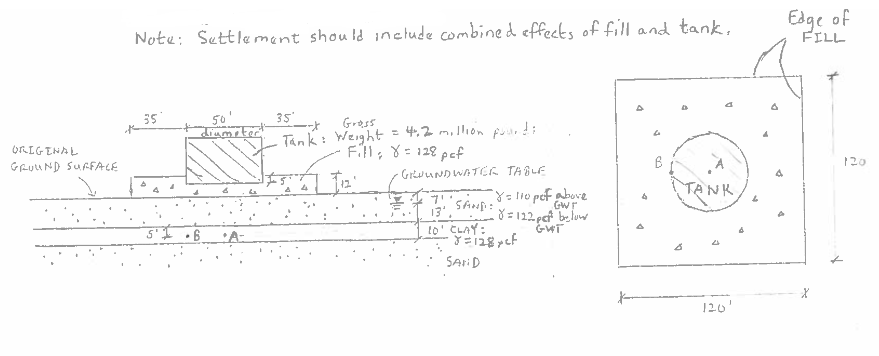 Note: Settlement should include combined effects of fill and tank.
Edge of
FILL
35' 50' 35'
diameter
Gross
Tank: Weight = 4.2 million pounds
Fill, γ = 128 pcf
ORIGINAL
GROUND SURFACE
5'
12'
GROUNDWATER TABLE
7' SAND: γ = 110 pcf above
GWT
13' γ = 122 pcf below
GWT
10' CLAY:
γ = 128 pcf
5' B A
SAND
B A
TANK
120
120'